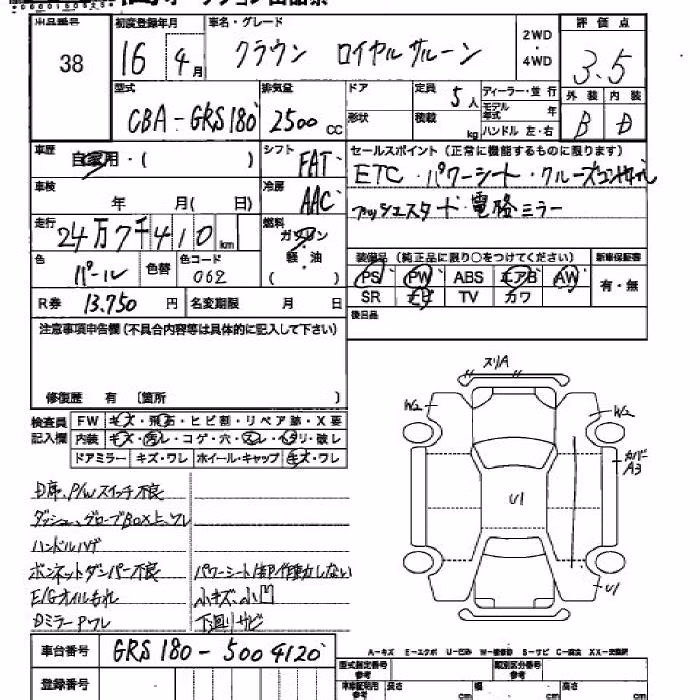 出品番号 38
初度登録年月 16 4月
車名・グレード クラウン ロイヤルサルーン
2WD・4WD
評価点 3.5
外装 B 内装 D
型式 CBA-GRS180
排気量 2500 cc
ドア
形状
定員 5人
積載 kg
ディーラー・並行
モデル年式 年
ハンドル 左・右
車歴 自家用・( )
シフト FAT
セールスポイント(正常に機能するものに限ります)
ETC・パワーシート・クルーズコントロール
プッシュスタート・電格ミラー
車検 年 月( 日)
冷房 AAC
走行 24万7千410 km
燃料 ガソリン 軽・油 ( )
色 パール 色替 色コード 062
装備品(純正品に限り○をつけてください)
PS PW ABS エアB AW
SR ナビ TV カワ
新車保証書 有・無
R券 13,750円 名変期限 月 日
後日品
注意事項申告欄(不具合内容等は具体的に記入して下さい)
修復歴 有 〔箇所 〕
検査員記入欄
FW キズ・飛石・ヒビ割・リペア跡・X要
内装 キズ・汚レ・コゲ・穴・スレ・ヘタリ・破レ
ドアミラー キズ・ワレ ホイール・キャップ キズ・ワレ
スリA
W2
W2
カバーA3
U1
U1
D席、P/Wスイッチ不良
ダッシュ、グローブBOX上、ワレ
ハンドルハゲ
ボンネットダンパー不良 パワーシート1部作動しない
E/Gオイルもれ 小キズ、小凹
Dミラーアワレ 下廻りサビ
車台番号 GRS180-5004120
登録番号
A-キズ E-エクボ U-凹み W-補修跡 B-サビ C-腐食 XX-交換済
型式指定番号 参考
類別区分番号 参考
長さ cm
cm
cm